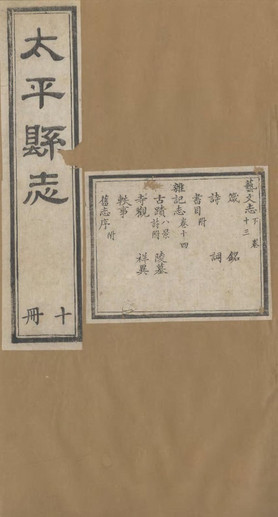 太平縣志
十冊
藝文志下卷十三
箴 銘
詩 詞
書目附
雜記志卷十四
古蹟八景詩附 陵墓
寺觀 祥異
軼事
舊志序附